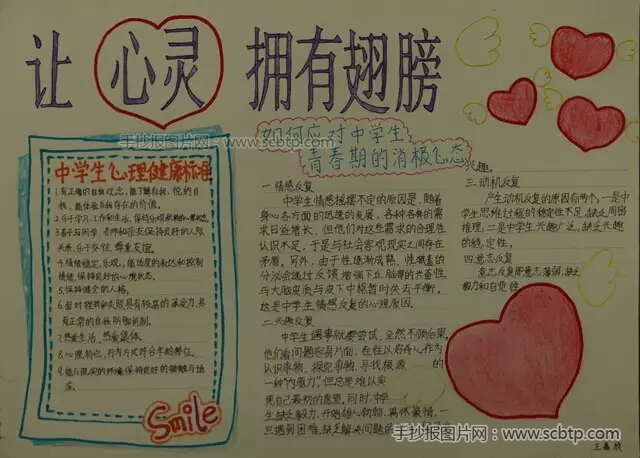 让心灵拥有翅膀
中学生心理健康标准
1.有正确的自我观念,能了解自我,悦纳自
我,能体验自我存在的价值。
2.乐于学习,工作和生活,保持乐观积极的心理状态。
3.善于与同学、老师和亲友保持良好的人际
关系,乐于交往,尊重友谊。
4.情绪稳定、乐观,能适度的表达和控制
情绪,保持良好的心境状态。
5.保持健全的人格。
6.面对挫折和失败具有较高的承受力,具
有正常的自我防御机制。
7.热爱生活、热爱集体。
8.心理特点、行为方式符合年龄特征。
9.能与现实的环境保持良好的接触与适
应。
Smile
如何应对中学生
青春期的消极心态
一.情感反复
中学生情感摇摆不定的原因是,随着
身心各方面的迅速的发展,各种各样的需
求日益增长,但他们对这些需求的合理性
认识不足,于是与社会客观现实之间存在
矛盾。另外,由于性逐渐成熟,性激素的
分泌会通过反馈增强下丘脑部的兴奋性,
与大脑实质与皮下中枢暂时失去平衡,
这是中学生情感反复的心理原因。
二.兴趣反复
中学生遇事就要尝试、全然不顾后果,
他们看问题容易片面,在往以好奇心作为
认识事物,探究事物,寻找根源的
一种"内驱力"但总是难以实
现自己最初的愿望,同时,中学
生缺乏毅力,开始雄心勃勃,满怀豪情,一
旦遇到困难,缺乏解决问题的
兴趣。
三.动机反复
产生动机反复的原因有两个,一是中
学生思维过程的稳定性不足,缺乏周密
推理;二是中学生兴趣广泛,缺乏兴趣
的稳定性。
四.意志反复
意志反复即意志薄弱,缺乏
毅力和自觉性
手抄报图片网:www.scbtp.com
手抄报图片网:www.scbtp.com